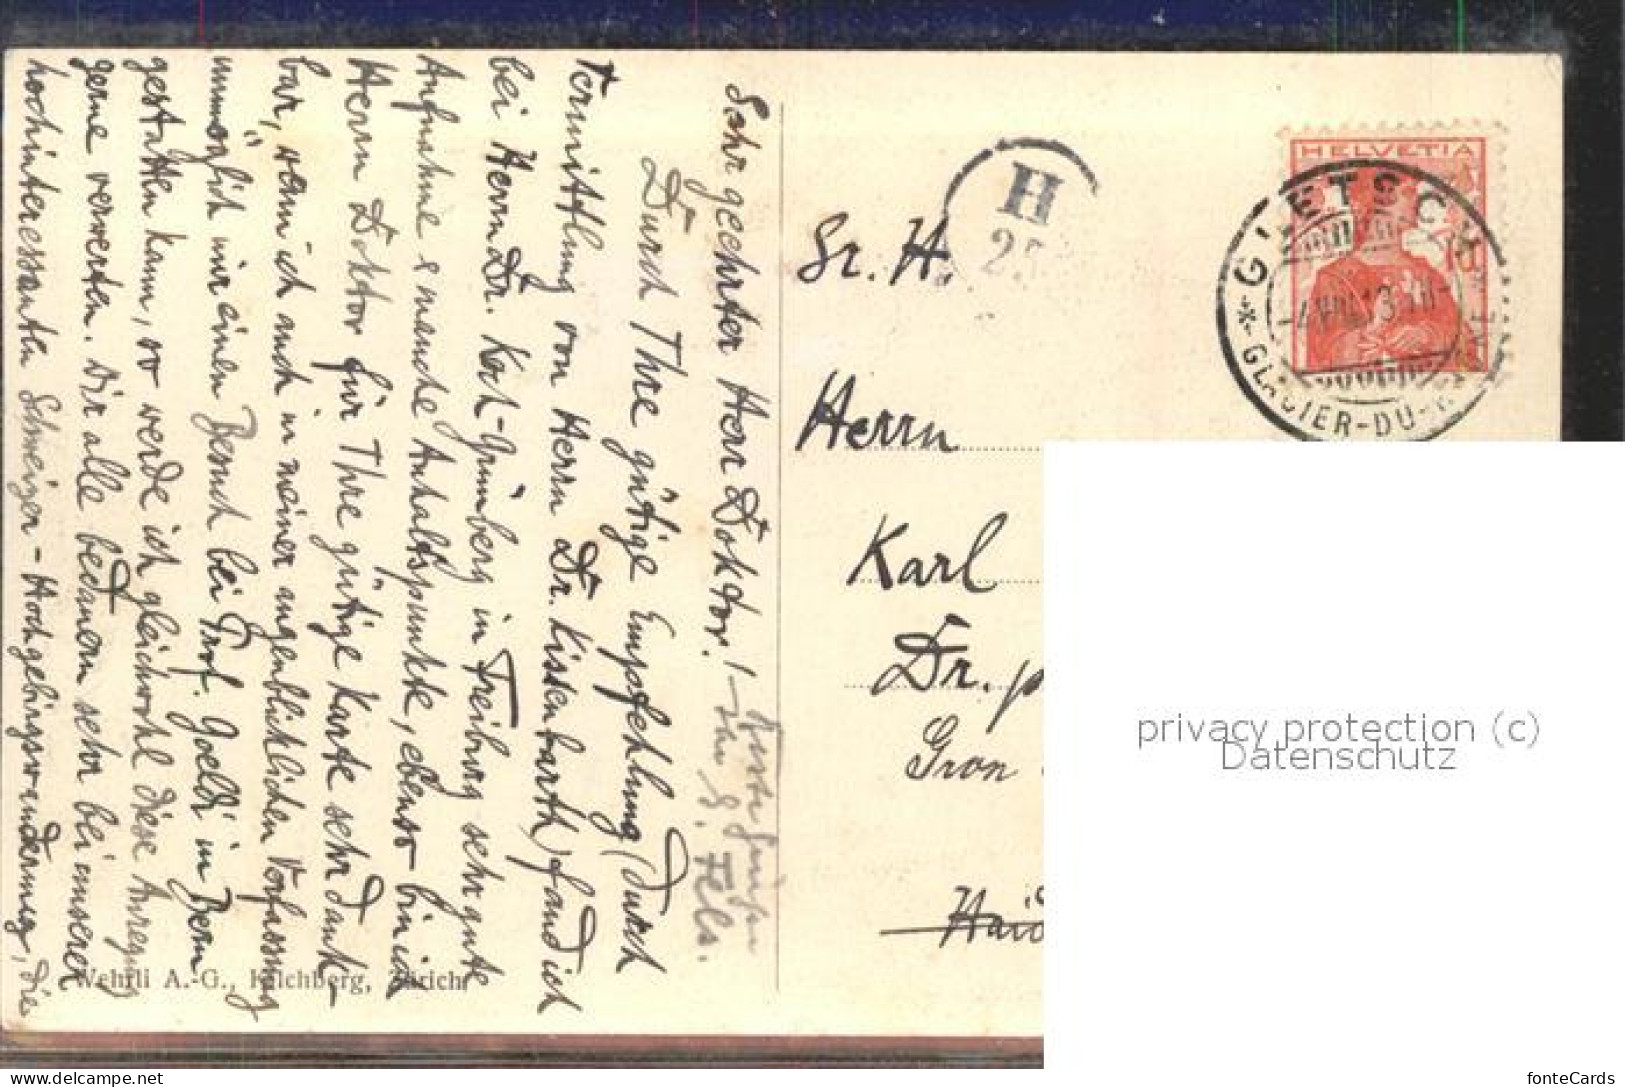 Sehr geehrter Herr Doktor!
Durch Ihre gütige Empfehlung (durch
Vermittlung von Herrn Dr. Kissenbarth) fand ich
bei Herrn Dr. Koch-Grünberg in Freiburg sehr gute
Aufnahme & manche Anhaltspunkte, ebenso bin ich
Herrn Doktor für Ihre gütige Karte sehr dank-
bar, wenn ich auch in meiner augenblicklichen Verfassung
unmöglich mir einen Besuch bei Prof. Goeldi in Bern
gestatten kann, so werde ich gleichwohl diese Anregung
gerne verwerten. Wir alle bedauern sehr bei unserer
hochinteressanten Schweizer-Hochgebirgswanderung, die
Ihr E. Fels.
Wehrli A.-G., Kilchberg, Zürich
H
25
HELVETIA
10
GLETSCH
GLACIER-DU-
Sr. H
Herrn
Karl
Dr. p
Gron
Haid
privacy protection (c)
Datenschutz
delcampe.net
fonteCards